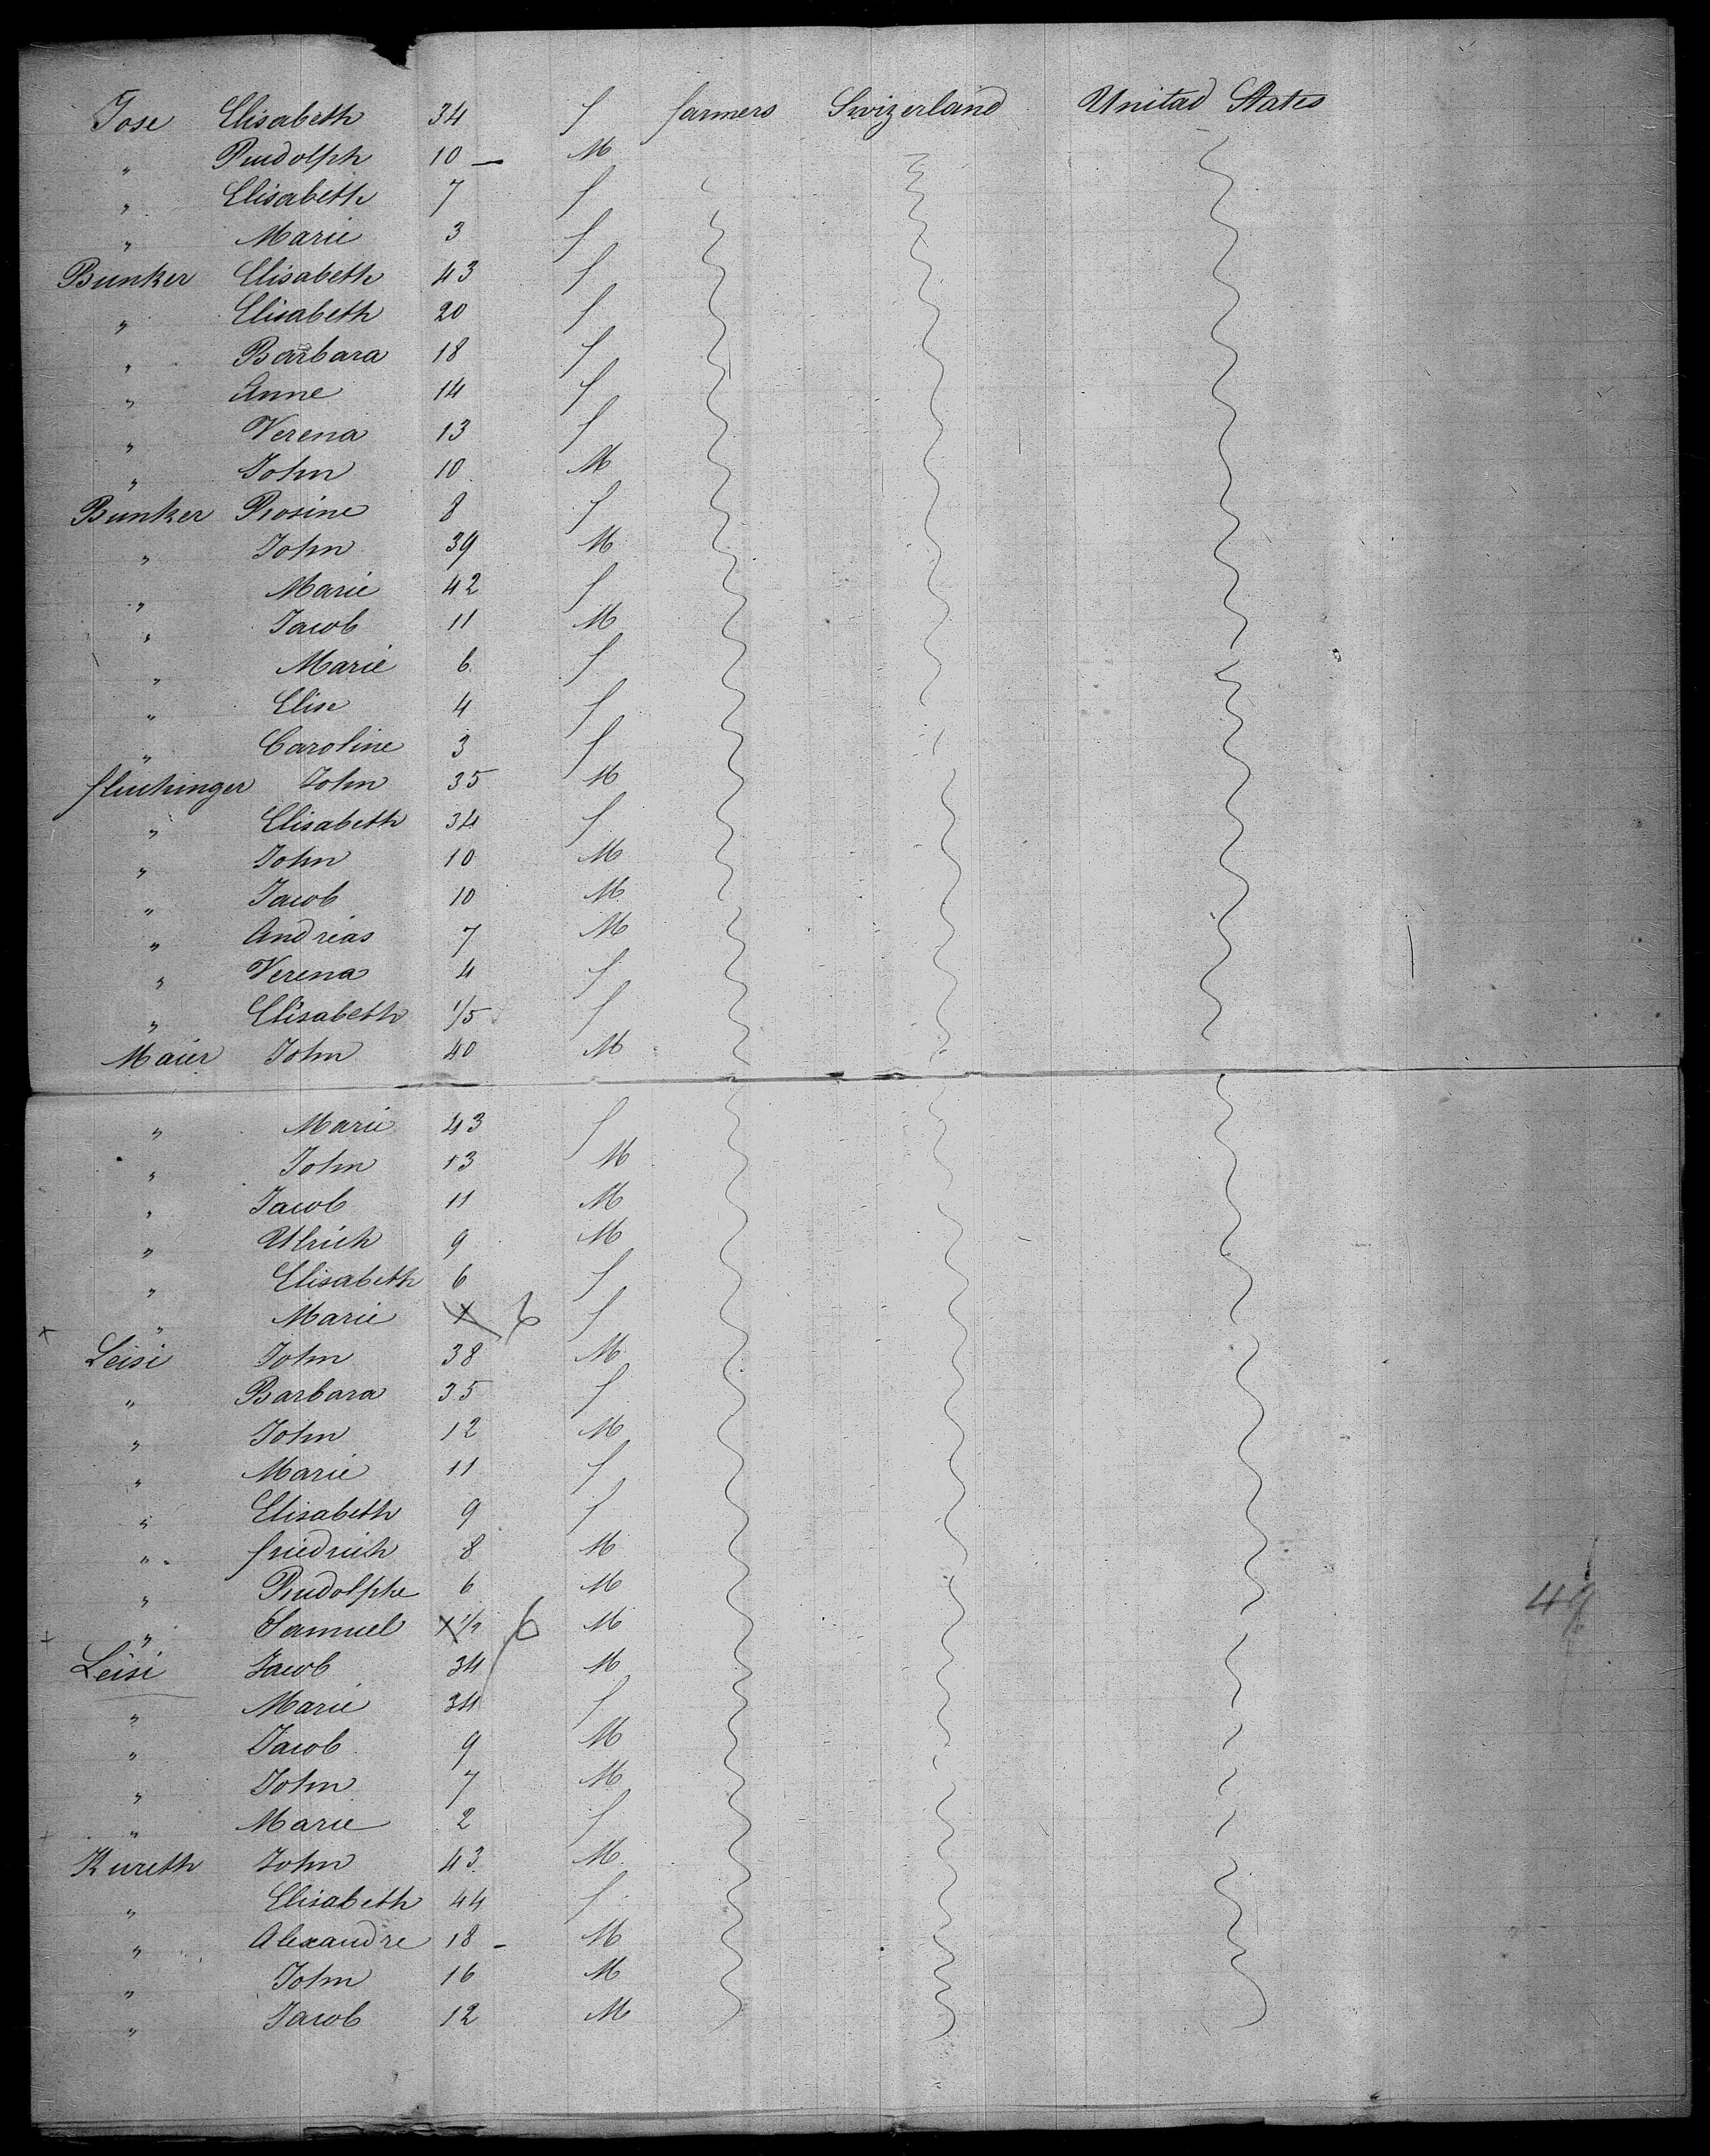 Jose Elisabeth 34 f farmers Swizerland Unitad States
" Rudolph 10 — M
" Elisabeth 7 f
" Marie 3 f
Bunker Elisabeth 43 f
" Elisabeth 20 f
" Barbara 18 f
" Anne 14 f
" Verena 13 f
" John 10 M
Bunker Rosine 8 f
" John 39 M
" Marie 42 f
" Jacob 11 M
" Marie 6 f
" Elise 4 f
" Caroline 3 f
John 35 M
" Elisabeth 34 f
" John 10 M
" Jacob 10 M
" Andreas 7 M
" Verena 4 f
" Elisabeth 1/5 f
Maier John 40 M
" Marie 43 f
" John 13 M
" Jacob 11 M
" Ulrich 9 M
" Elisabeth 6 f
" Marie 6 f
Leisi John 38 M
" Barbara 35 f
" John 12 M
" Marie 11 f
" Elisabeth 9 f
" friedrich 8 M
" Rudolphe 6 M
" Samuel 6 M
Leisi Jacob 34 M
" Marie 34 f
" Jacob 9 M
" John 7 M
" Marie 2 f
Kureth John 43 M
" Elisabeth 44 f
" Alexandre 18 - M
" John 16 M
" Jacob 12 M
49